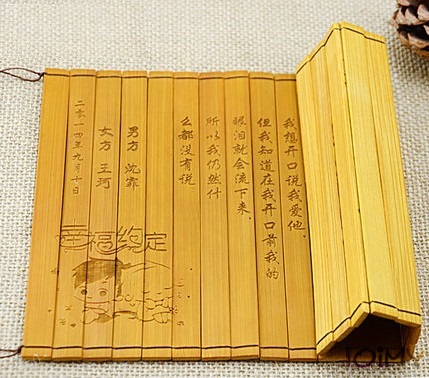 我想开口说我爱他，
但我知道在我开口前我的
眼泪就会流下来，
所以我仍然什
么都没有说
男方 沈霏
女方 王珂
二零一四年九月十日
幸福约定
JOiM